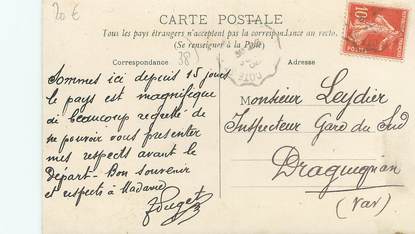 20 €
CARTE POSTALE
Tous les pays étrangers n'acceptent pas la correspondance au recto.
(Se renseigner à la Poste)
Correspondance
38)
Adresse
Sommes ici depuis 15 jours
le pays est magnifique
ai beaucoup regretté de
ne pouvoir vous présenter
mes respects avant le
départ - Bon souvenir
et respects à Madame
Monsieur Leydier
Inspecteur Gare du Sud
Draguignan
(Var)
10